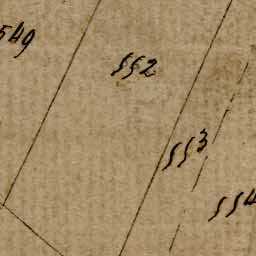 549
552
553
554